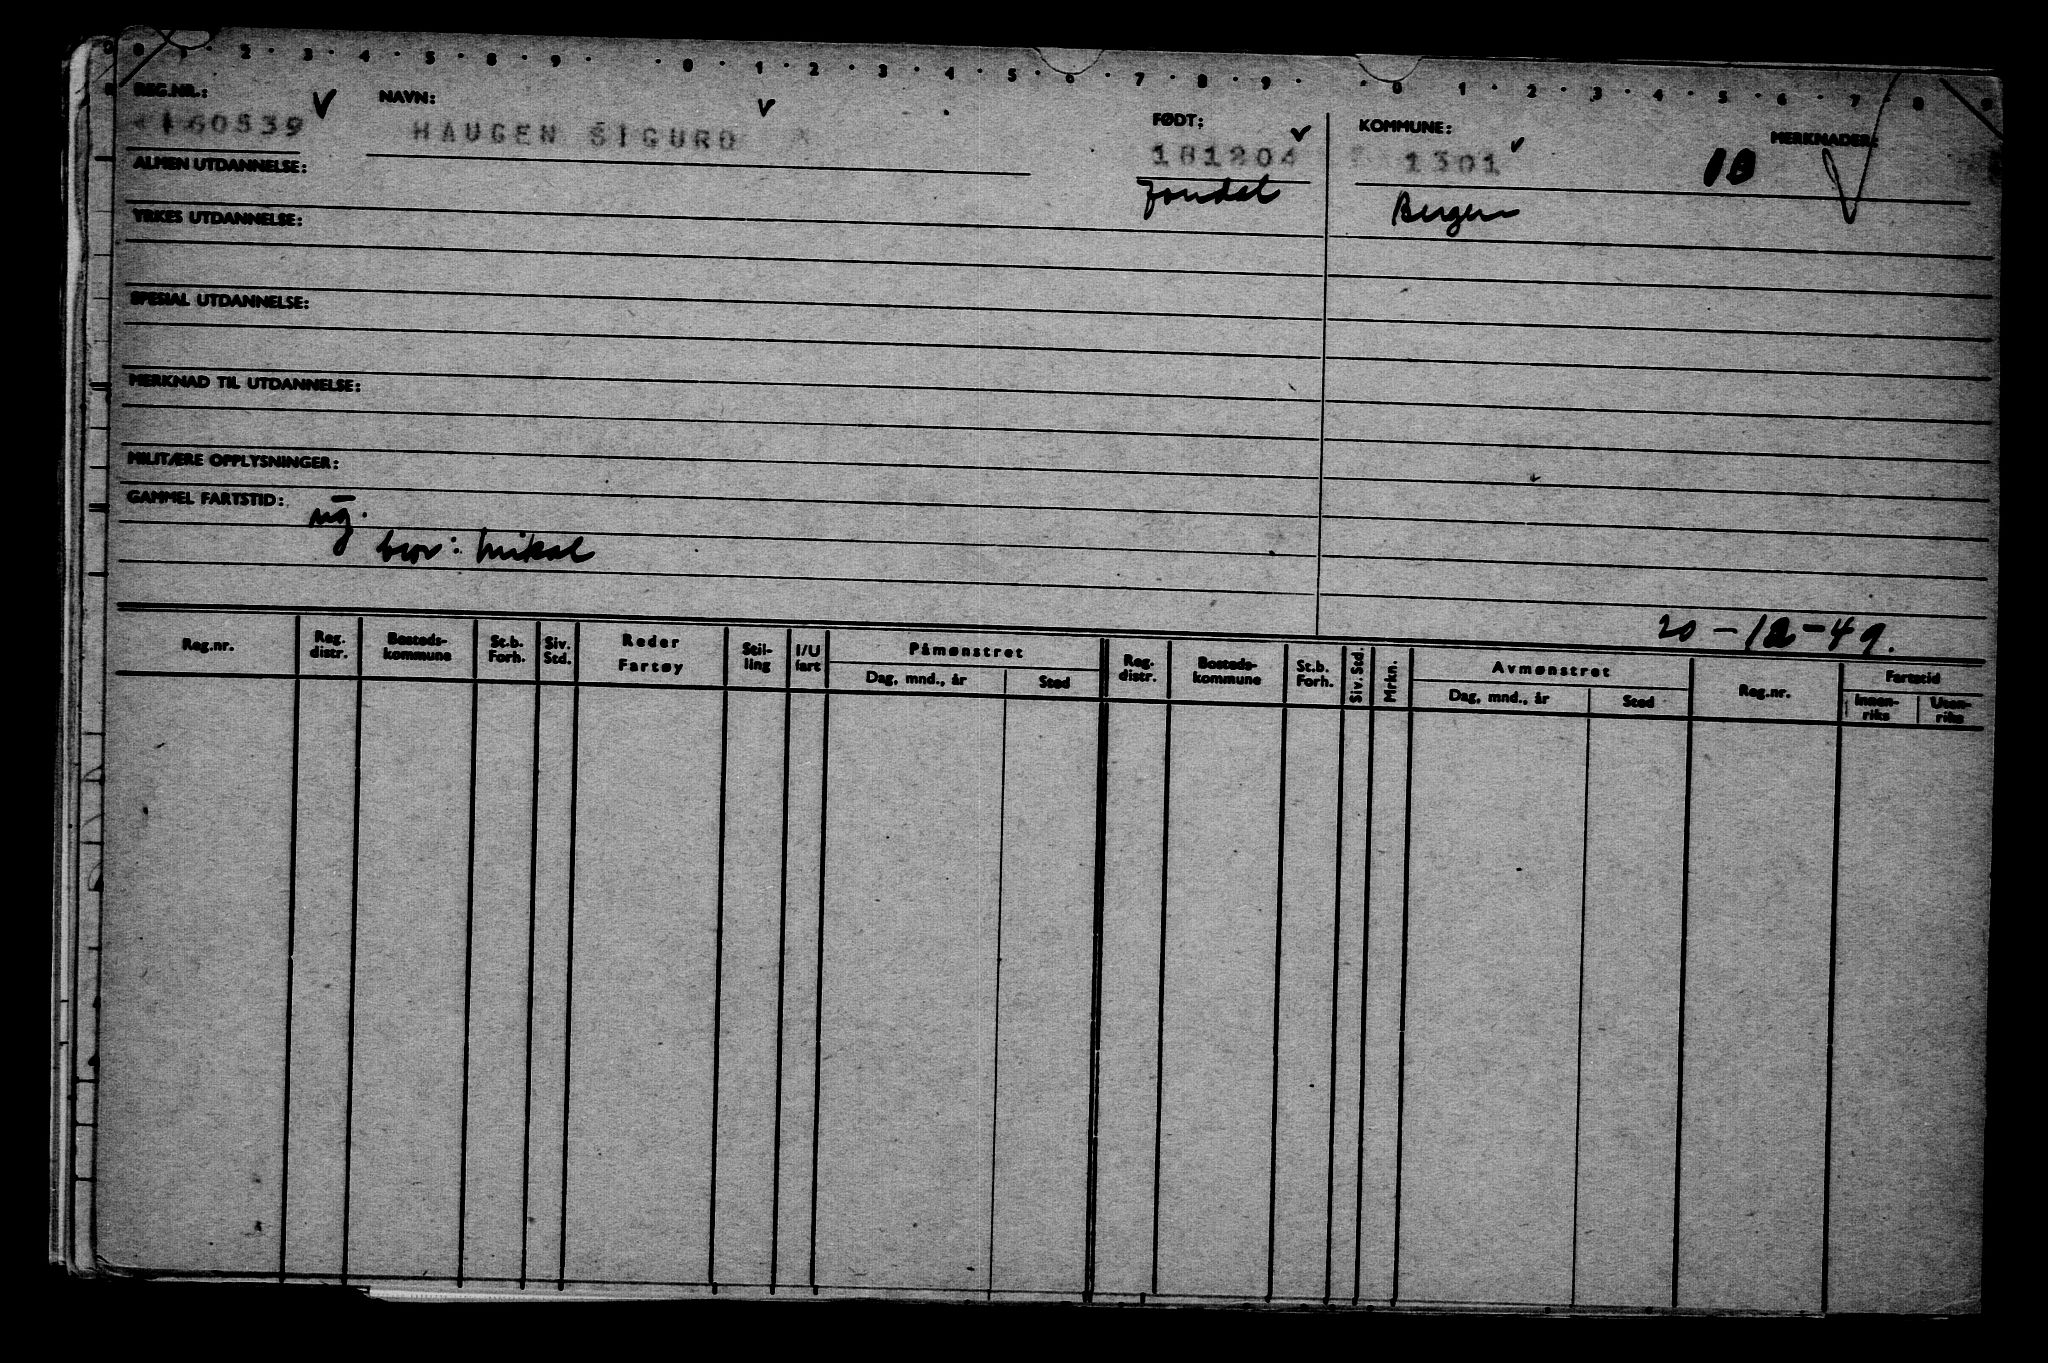 0 1 2 3 4 5 8 9 0 1 2 3 4 5 6 7 8 9 0 1 2 3 4 5 6 7 8 9
REG.NR.: NAVN: FØDT: KOMMUNE: MERKNADER:
160539 HAUGEN SIGURD 181204 1301 10
ALMEN UTDANNELSE: Jondal Bergen
YRKES UTDANNELSE:
SPESIAL UTDANNELSE:
MERKNAD TIL UTDANNELSE:
MILITÆRE OPPLYSNINGER:
GAMMEL FARTSTID:
bror: Mikal
20-12-49.
Reg.nr. Reg. distr. Bosteds-kommune St.b. Forh. Siv. Std. Reder Fartøy Stil-ling I/U fart Påmønstret Dag, mnd., år Sted Reg. distr. Bosteds-kommune St.b. Forh. Siv. Std. Mrkn. Avmønstret Dag, mnd., år Sted Reg.nr. Fartstid Innen-riks Uten-riks